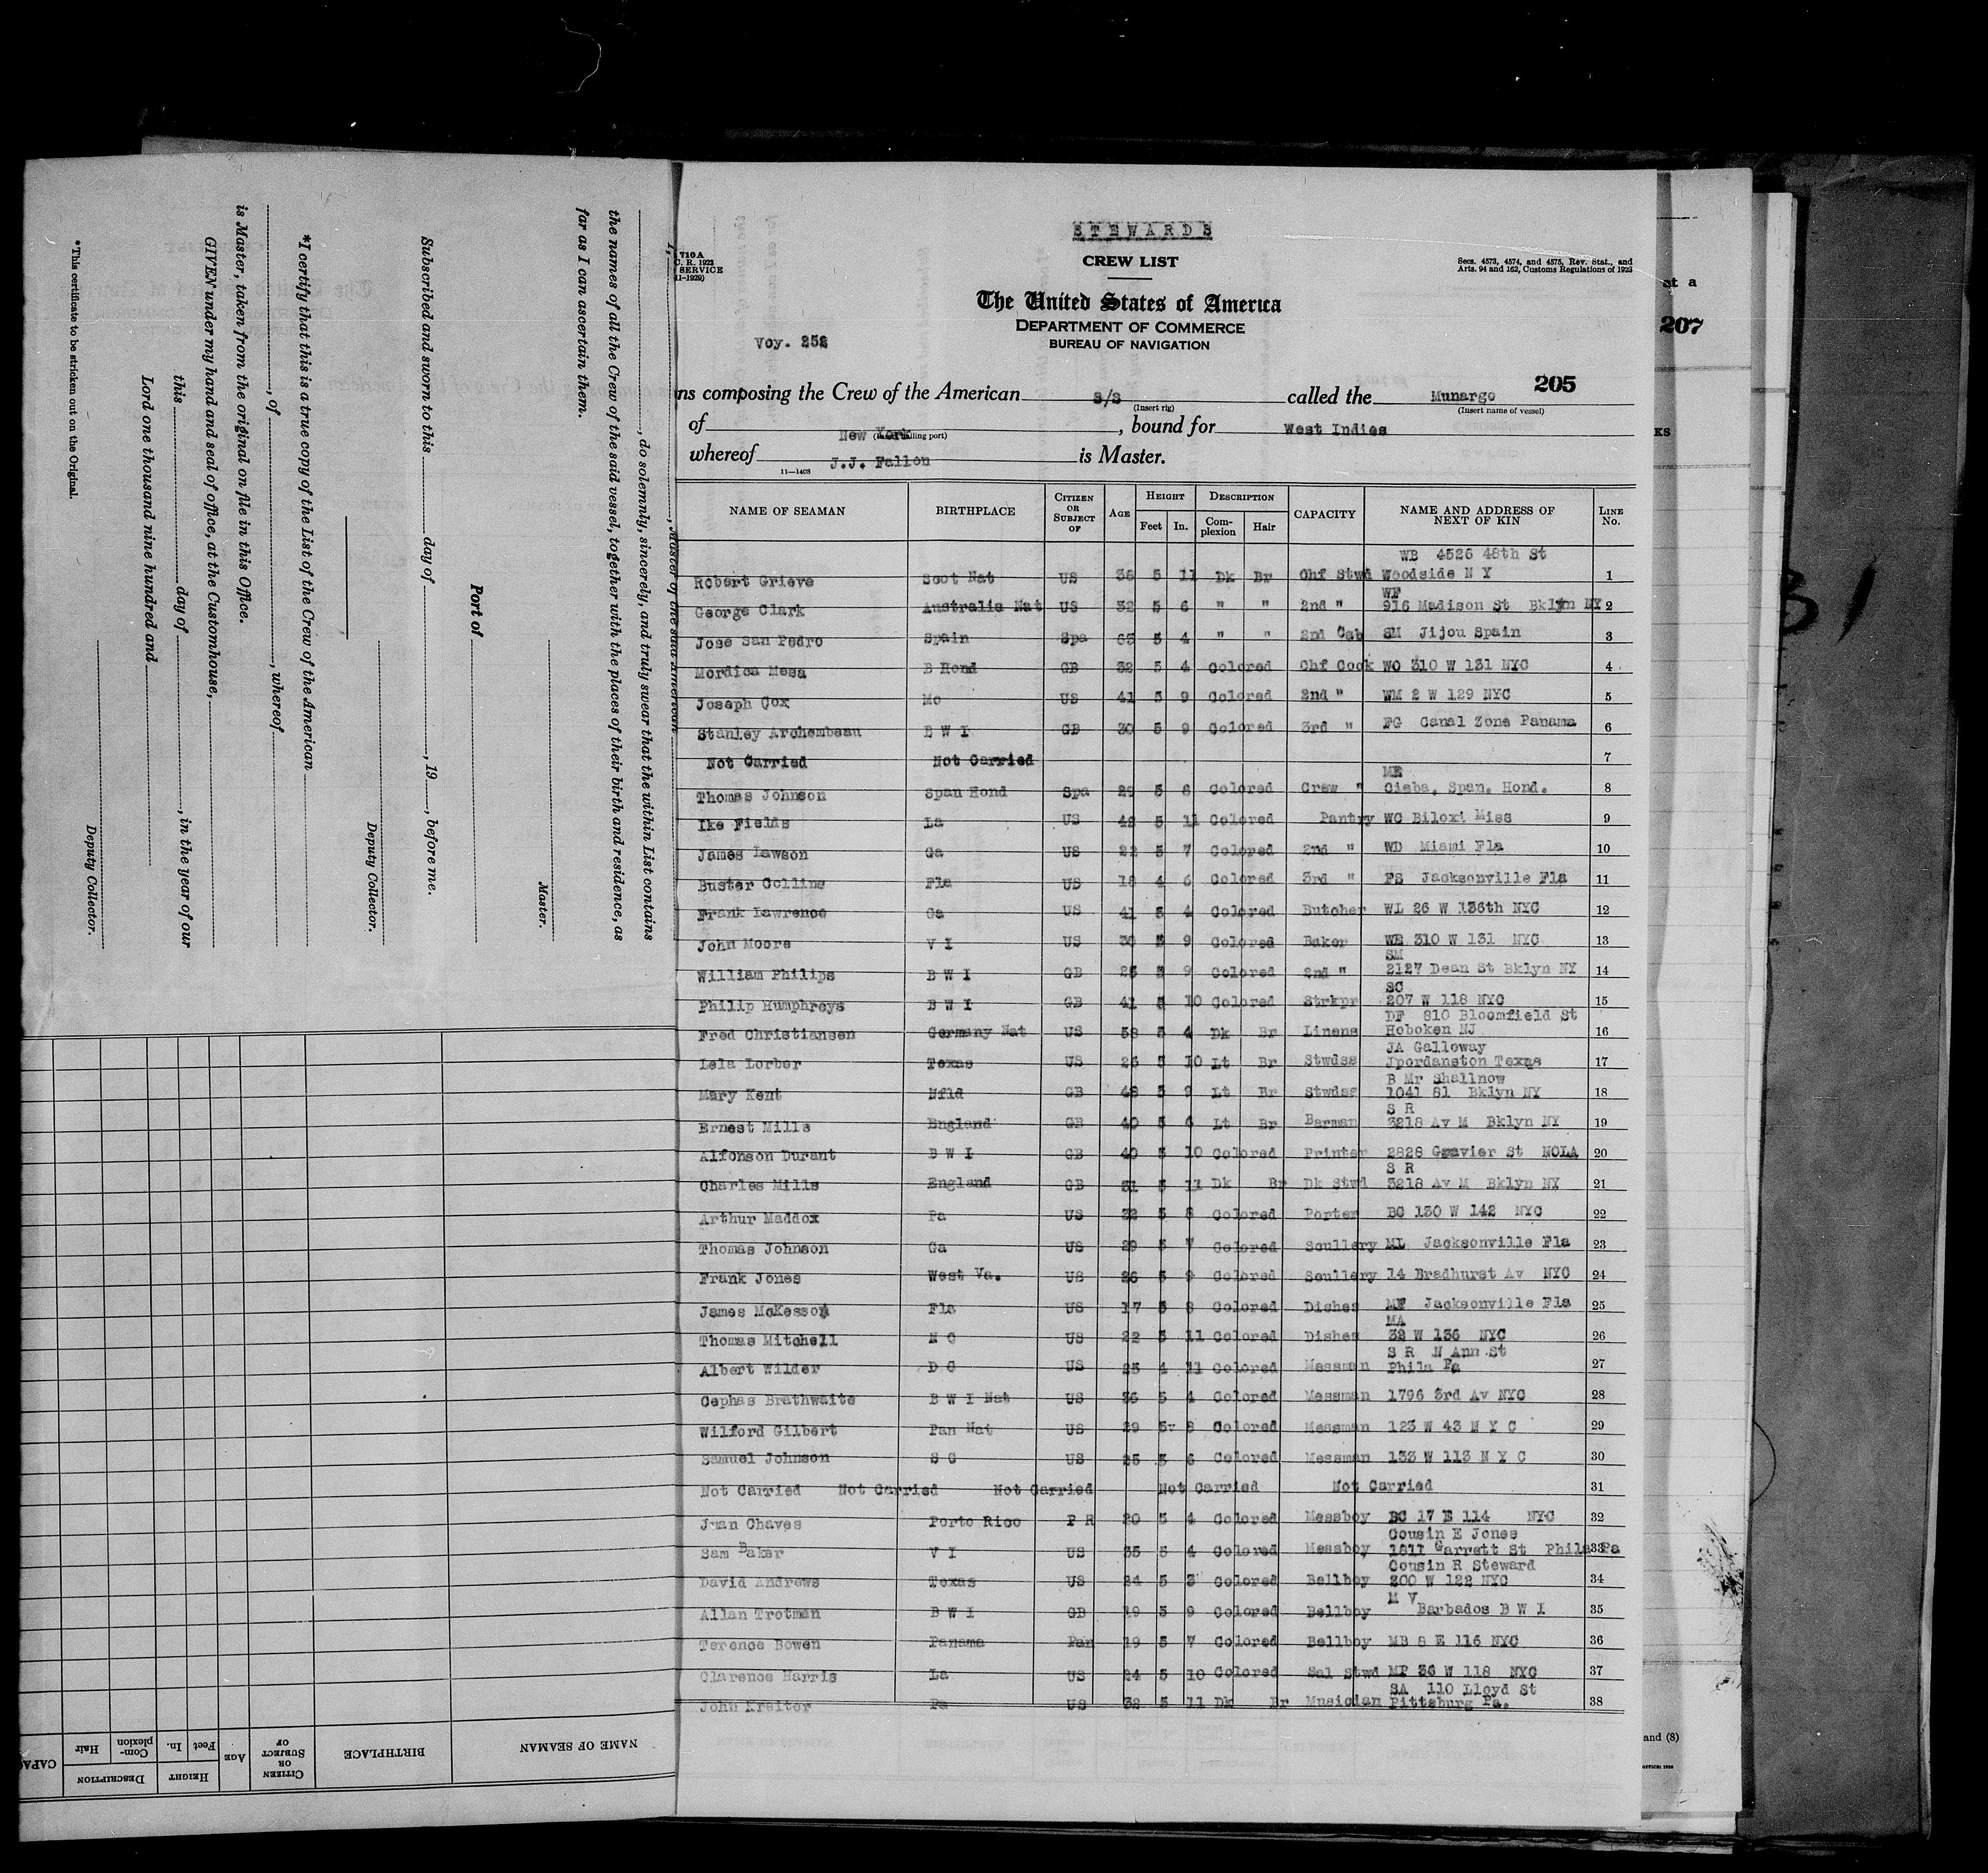 STEWARDS
CREW LIST
710A
C. R. 1923
SERVICE
11-1929)
Secs. 4573, 4574, and 4575, Rev. Stat., and
Arts. 94 and 162, Customs Regulations of 1923
The United States of America
DEPARTMENT OF COMMERCE
BUREAU OF NAVIGATION
Voy. 252
205
ns composing the Crew of the American s/s called the Munargo
(Insert rig) (Insert name of vessel)
of New York, bound for West Indies
whereof J.J. Fallon is Master.
11—1408
NAME OF SEAMAN BIRTHPLACE CITIZEN OR SUBJECT OF AGE HEIGHT Feet In. DESCRIPTION Complexion Hair CAPACITY NAME AND ADDRESS OF NEXT OF KIN LINE No.
WB 4526 48th St
Robert Grieve Scot Nat US 38 5 11 Dk Br Chf Stwd Woodside N Y 1
WF
George Clark Australia Nat US 32 5 6 " " 2nd " 916 Madison St Bklyn NY 2
Jose San Pedro Spain Spa 65 5 4 " " 2nd Cab SM Jijou Spain 3
Mordica Mesa B Hond GB 32 5 4 Colored Chf Cook WO 310 W 131 NYC 4
Joseph Cox Mo US 41 5 9 Colored 2nd " WM 2 W 129 NYC 5
Stanley Archembeau B W I GB 30 5 9 Colored 3rd " FG Canal Zone Panama 6
Not Carried Not Carried 7
ME
Thomas Johnson Span Hond Spa 29 5 8 Colored Crew " Cieba, Span. Hond. 8
Ike Fields La US 42 5 11 Colored Pantry WC Biloxi Miss 9
James Lawson Ga US 22 5 7 Colored 2nd " WD Miami Fla 10
Buster Collins Fla US 18 4 6 Colored 3rd " FS Jacksonville Fla 11
Frank Lawrence Ga US 41 5 4 Colored Butcher WL 26 W 136th NYC 12
John Moore V I US 30 5 9 Colored Baker WE 310 W 131 NYC 13
SM
William Philips B W I GB 25 5 9 Colored 2nd " 2127 Dean St Bklyn NY 14
SC
Philip Humphreys B W I GB 41 5 10 Colored Strkpr 207 W 118 NYC 15
DF 810 Bloomfield St
Fred Christiansen Germany Nat US 38 5 4 Dk Br Linens Hoboken NJ 16
JA Galloway
Lela Lorber Texas US 26 5 10 Lt Br Stwdss Jpordanston Texas 17
B Mr Shallnow
Mary Kent Nfld GB 48 5 9 Lt Br Stwdss 1041 81 Bklyn NY 18
S R
Ernest Mills England GB 40 5 6 Lt Br Barman 3218 Av M Bklyn NY 19
Alfonson Durant B W I GB 40 5 10 Colored Printer 2828 Gravier St NOLA 20
S R
Charles Mills England GB 31 5 11 Dk Br Dk Stwd 3218 Av M Bklyn NY 21
Arthur Maddox Pa US 32 5 8 Colored Porter BC 130 W 142 NYC 22
Thomas Johnson Ga US 29 5 7 Colored Scullery ML Jacksonville Fla 23
Frank Jones West Va. US 26 5 9 Colored Scullery 14 Bradhurst Av NYC 24
James McKesson Fla US 17 5 8 Colored Dishes MF Jacksonville Fla 25
MA
Thomas Mitchell N C US 22 5 11 Colored Dishes 32 W 136 NYC 26
S R N Ann St
Albert Wilder D C US 25 4 11 Colored Messman Phila Pa 27
Cephas Brathwaite B W I Nat US 36 5 4 Colored Messman 1796 3rd Av NYC 28
Wilford Gilbert Pan Nat US 29 5v 8 Colored Messman 123 W 43 N Y C 29
Samuel Johnson S C US 25 5 6 Colored Messman 133 W 113 N Y C 30
Not Carried Not Carried Not Carried Not Carried Not Carried 31
Juan Chaves Porto Rico P R 20 5 4 Colored Messboy BC 17 E 114 NYC 32
Cousin E Jones
Sam Baker V I US 35 5 4 Colored Messboy 1811 Garrett St Phila Pa 33
Cousin R Steward
David Andrews Texas US 24 5 3 Colored Bellboy 200 W 122 NYC 34
M V
Allan Trotman B W I GB 19 5 9 Colored Bellboy Barbados B W I 35
Terence Bowen Panama Pan 19 5 7 Colored Bellboy MB 8 E 116 NYC 36
Clarence Harris La US 24 5 10 Colored Sal Stwd MP 36 W 118 NYC 37
SA 110 Lloyd St
John Kreiter Pa US 32 5 11 Dk Br Musician Pittsburg Pa. 38
at a
207
KS
31
and (8)
I, , Master of the said American
, do solemnly, sincerely, and truly swear that the within List contains
the names of all the Crew of the said vessel, together with the places of their birth and residence, as
far as I can ascertain them.
Master.
Port of
Subscribed and sworn to this day of , 19 , before me.
Deputy Collector.
*I certify that this is a true copy of the List of the Crew of the American
, of , whereof
is Master, taken from the original on file in this Office.
GIVEN under my hand and seal of office, at the Customhouse,
this day of , in the year of our
Lord one thousand nine hundred and
Deputy Collector.
*This certificate to be stricken out on the Original.
NAME OF SEAMAN BIRTHPLACE CITIZEN OR SUBJECT OF AGE HEIGHT Feet In. DESCRIPTION Complexion Hair CAPAC